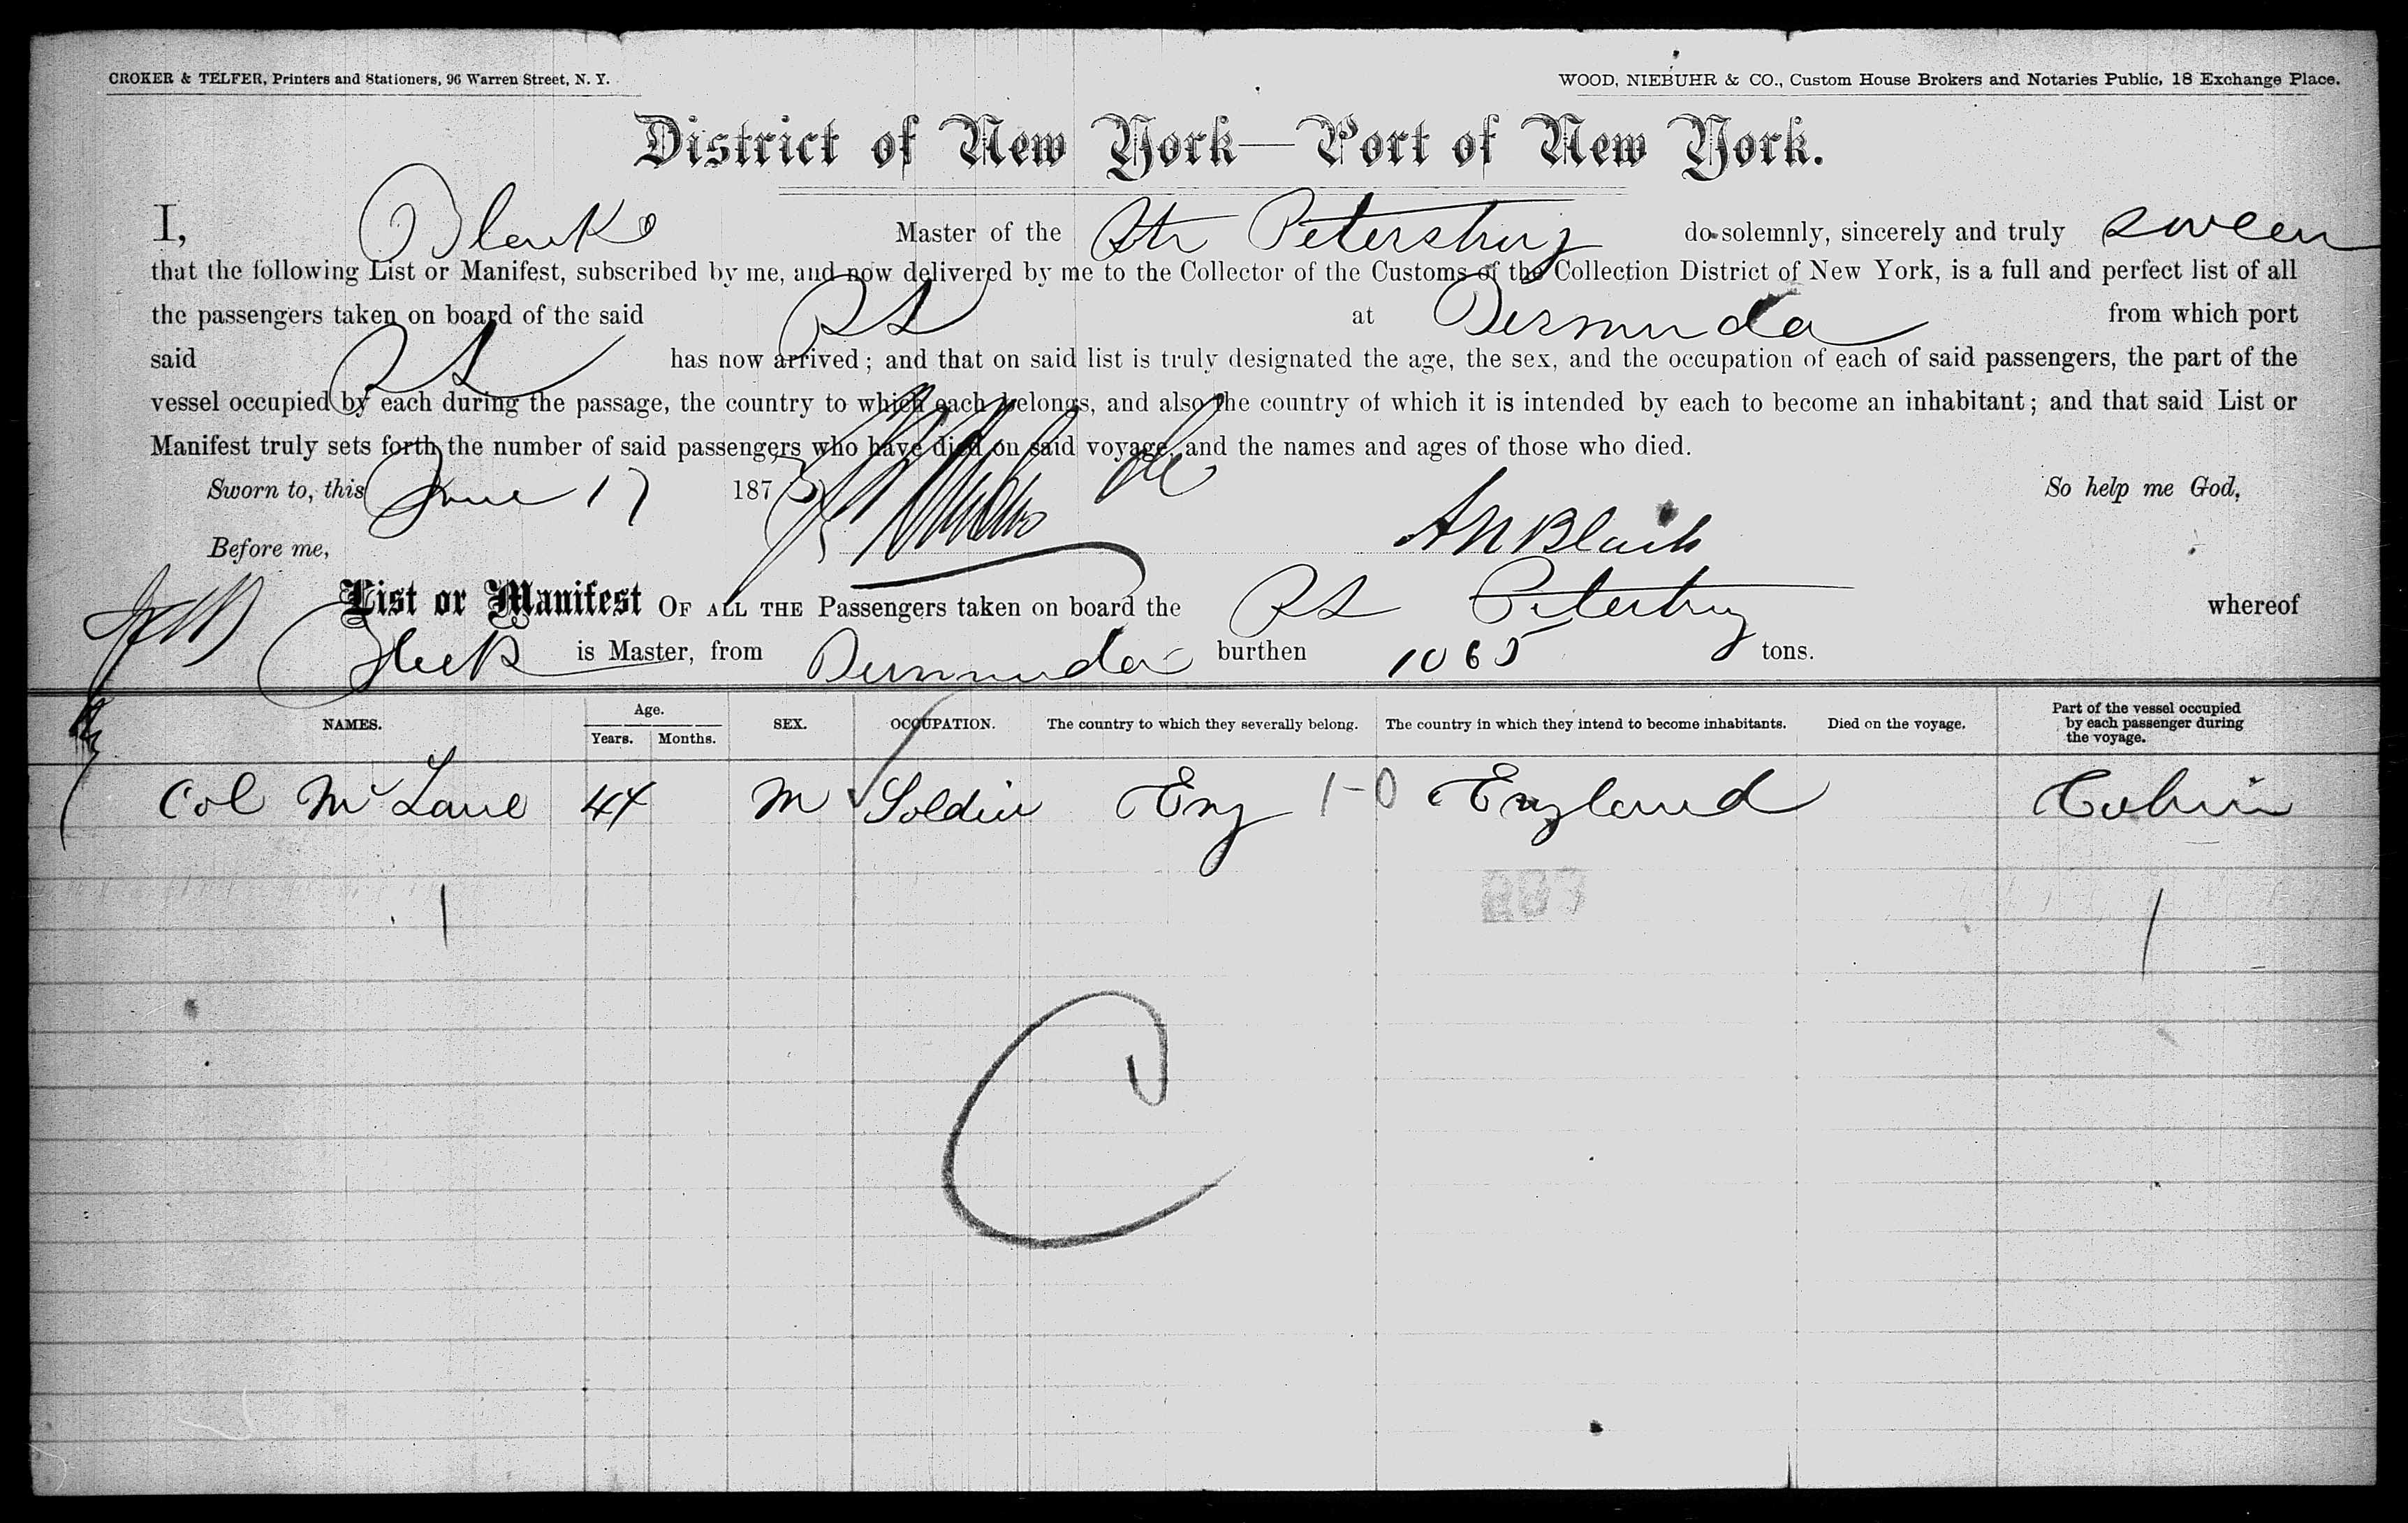 CROKER & TELFER, Printers and Stationers, 96 Warren Street, N. Y.
WOOD, NIEBUHR & CO., Custom House Brokers and Notaries Public, 18 Exchange Place.
District of New York—Port of New York.
I, Master of the Str Petersburg do solemnly, sincerely and truly swear
that the following List or Manifest, subscribed by me, and now delivered by me to the Collector of the Customs of the Collection District of New York, is a full and perfect list of all
the passengers taken on board of the said SS at Bermuda from which port
said SS has now arrived; and that on said list is truly designated the age, the sex, and the occupation of each of said passengers, the part of the
vessel occupied by each during the passage, the country to which each belongs, and also the country of which it is intended by each to become an inhabitant; and that said List or
Manifest truly sets forth the number of said passengers who have died on said voyage, and the names and ages of those who died.
Sworn to, this June 17 187 So help me God,
Before me,
List or Manifest OF ALL THE Passengers taken on board the SS Petersburg whereof
is Master, from Bermuda burthen 1065 tons.
NAMES. Age. Years. Months. SEX. OCCUPATION. The country to which they severally belong. The country in which they intend to become inhabitants. Died on the voyage. Part of the vessel occupied by each passenger during the voyage.
Col McLane 44 M Soldier Eng 1-0 England Cabin
1 1
C